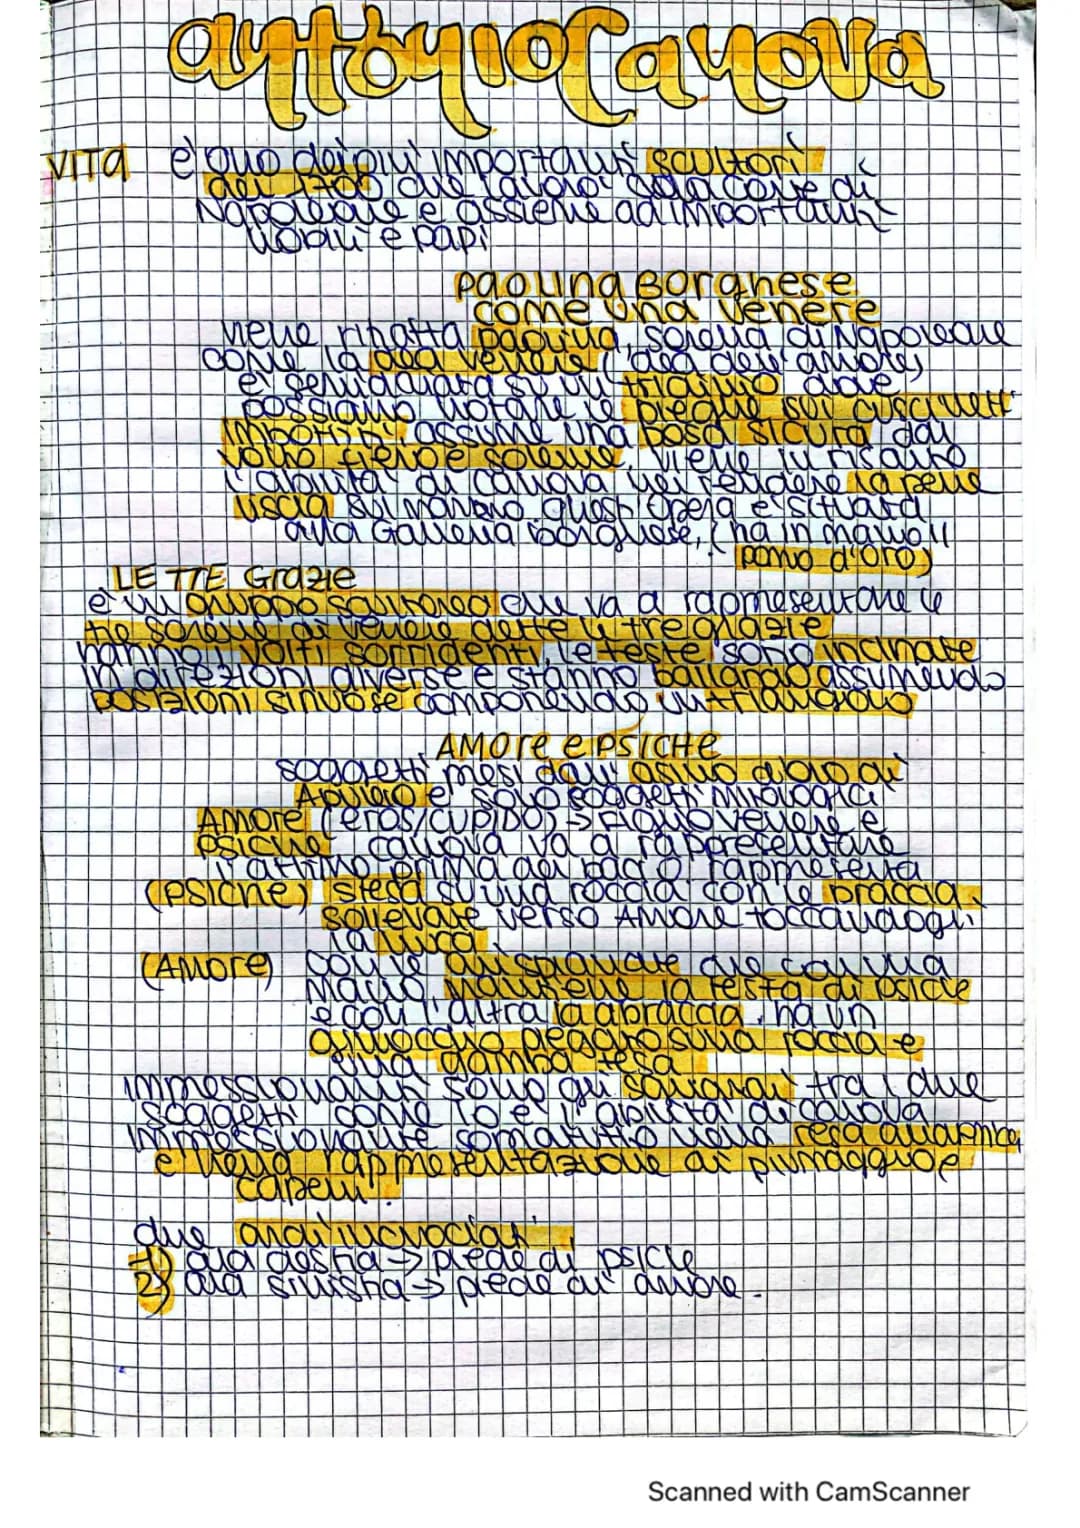 antonio Canova
VITA è uno dei più importanti scultori
del 1700 che lavorò alla corte di
Napoleone e assieme ad importanti
nobili e papi
PAOLINA BORGHESE
COME UNA VENERE
viene ritratta paolina, sorella di Napoleone
come la dea venere (dea dell'amore)
è semidraiata su un triclinio dove
possiamo notare le pieghe sui cuscinetti
imbottiti, assume una posa sicura dal
volto fiero e solenne. viene in risalto
l'abilità di canova nel rendere la pelle
liscia sul marmo. quest'opera è situata
alla Galleria borghese, (ha in mano il
pomo d'oro)
LE TTE Grazie
è un gruppo scultoreo che va a rappresentare le
tre sorelle di venere dette le tre grazie
hanno i volti sorridenti, le teste sono inclinate
in direzioni diverse e stanno ballando assumendo
posizioni sinuose componendo un triangolo
AMORE e PSICHE
soggetti presi dall'asino d'oro di
Apuleio e sono soggetti mitologici
AMORE (eros/CUPIDO) → figlio venere e
psiche canova va a rappresentare
l'attimo prima del bacio rappresenta
(PSICHE) stesa su una roccia con le braccia
sollevate verso Amore toccandogli
la nuca
(AMORE) con le ali spiegate che con una
mano mantiene la testa di psiche
e con l'altra la abbraccia, ha un
ginocchio piegato sulla roccia e
una gamba tesa
immessionanti sono gli sguardi tra i due
soggetti come lo è l'abilità di canova
immessionante sopratutto nella resa anatomica
e nella rappresentazione di piumaggio e
capelli.
due archi incrociati
1) ala destra → piede di psiche
2) ala sinistra → piede di amore.
Scanned with CamScanner